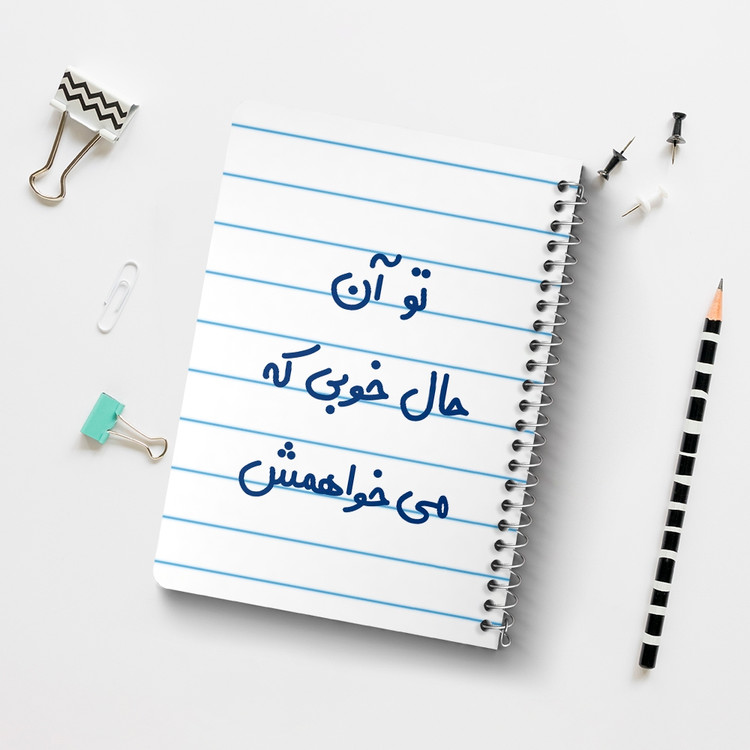 تو آن
حال خوبی که
می خواهمش